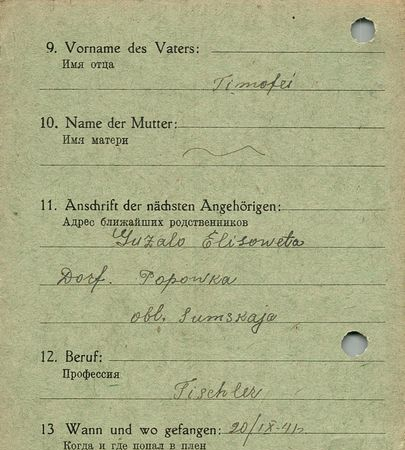 9. Vorname des Vaters:
Имя отца
Timofei
10. Name der Mutter:
Имя матери
11. Anschrift der nächsten Angehörigen:
Адрес ближайших родственников
Guzalo Elisoweta
Dorf. Popowka
obl. Sumskaja
12. Beruf:
Профессия
Tischler
13 Wann und wo gefangen: 20/IX-41
Когда и где попал в плен